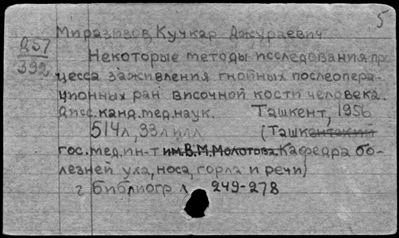 5
Миразизов, Кучкар Джураевич
Д51
392
Некоторые методы исследования про
цесса заживления гнойных послеопера-
ционных ран височной кости человека.
Дисс. канд. мед. наук. Ташкент, 1956
514л, 33л илл (Ташкентский
гос. мед. ин-т им. В.М. Молотова. Кафедра бо-
лезней уха, носа, горла и речи)
библиогр л 249-278